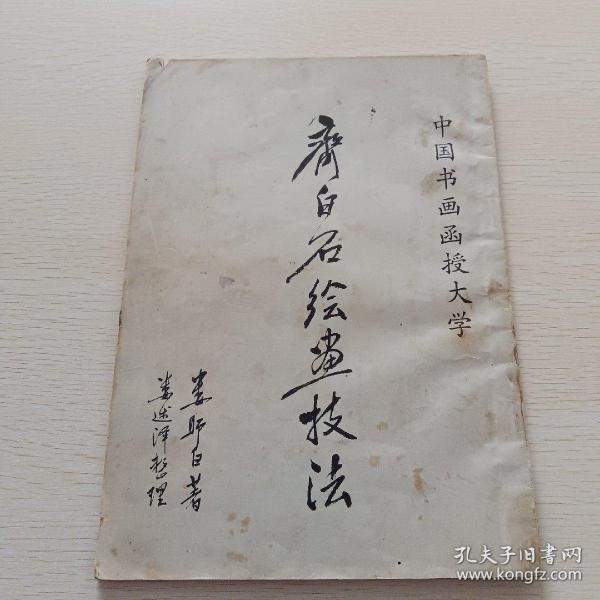 中国书画函授大学
齊白石绘畫技法
娄师白著
娄述泽整理
孔夫子旧书网
www.kongfz.com